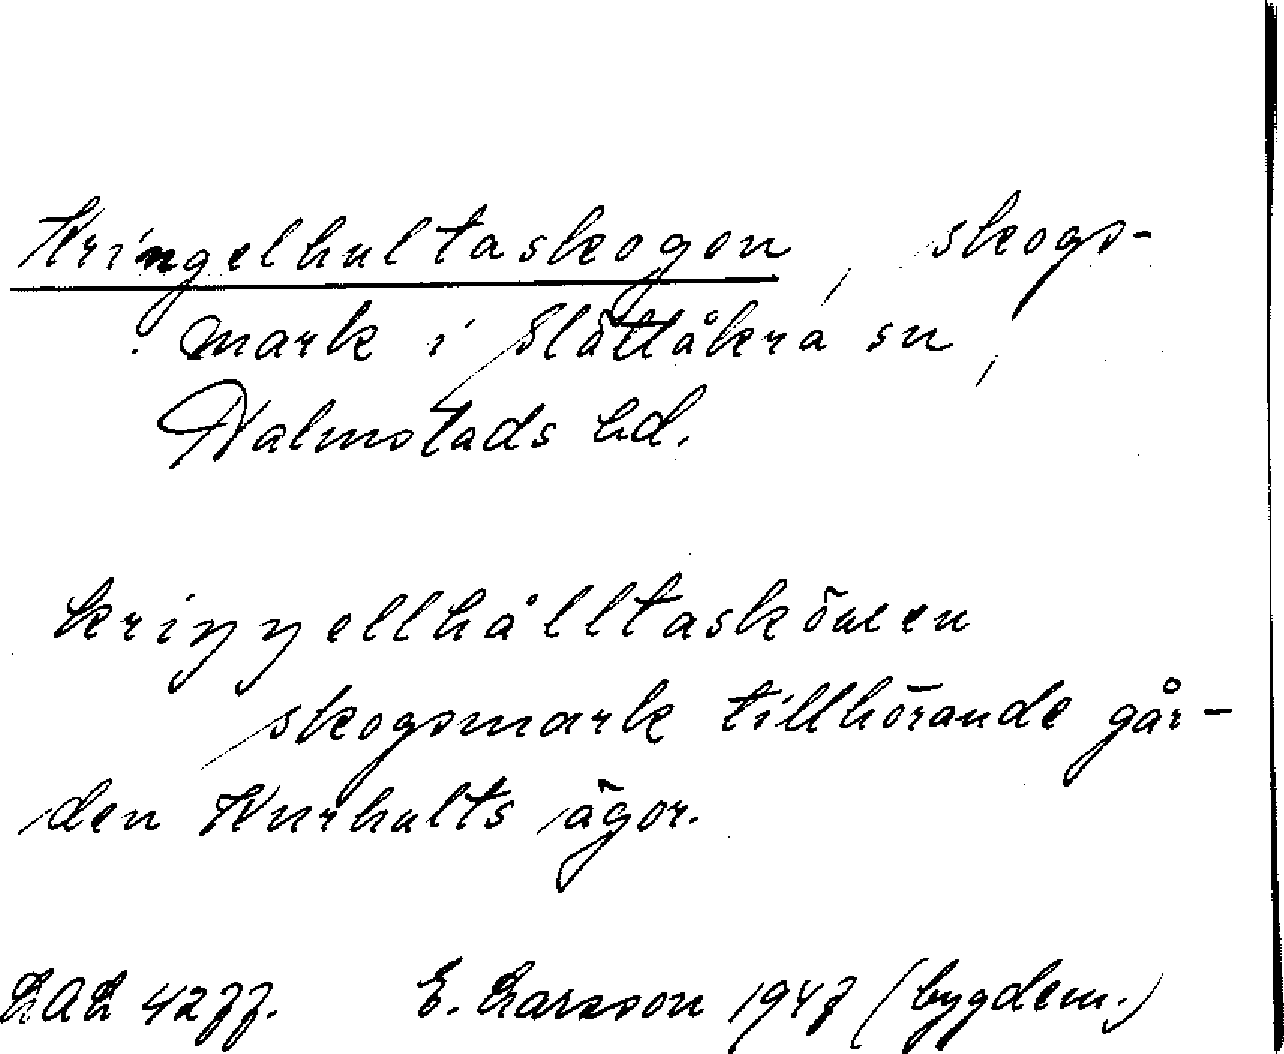 Kringelhultaskogen, skogs-
mark i Slättåkra sn,
Halmstads hd.
skogsmark tillhörande går-
den Kurhults ägor.
LAL 4277. E. Larsson 1947 (bygdem.)